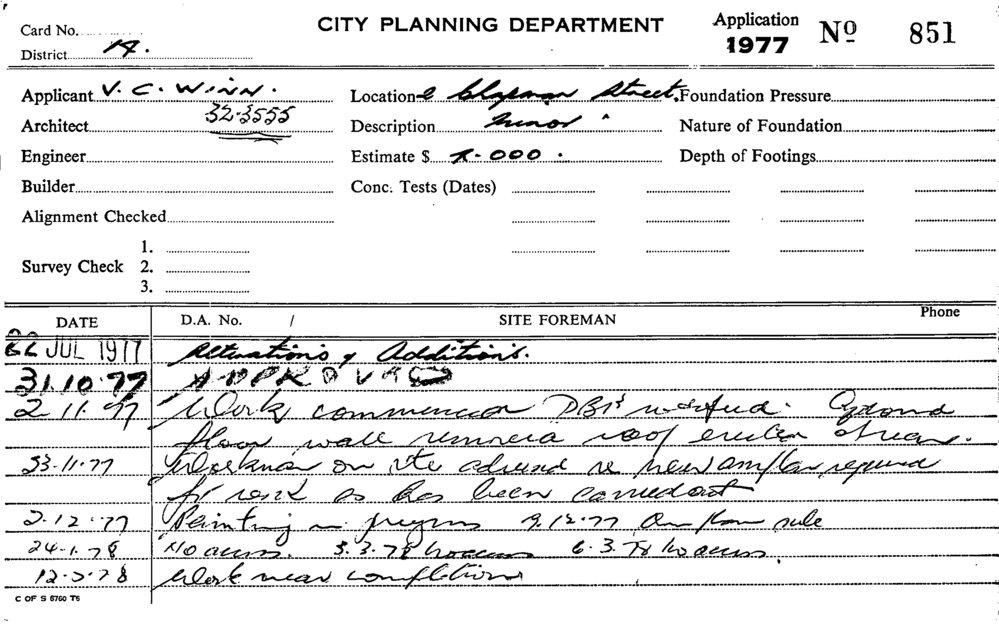 Card No.
CITY PLANNING DEPARTMENT
Application
1977
No 851
District 14.
Applicant V. C. WINN.
Location 2 Chapman Street.
Foundation Pressure
32-3555
Architect
Description minor "
Nature of Foundation
Engineer
Estimate $ 000.
Depth of Footings
Builder
Conc. Tests (Dates)
Alignment Checked
1.
Survey Check 2.
3.
DATE D.A. No. / SITE FOREMAN Phone
JUL 1977 Alterations & Additions.
31.10.77 APPROVED
2.11.77 Work commenced Ground
floor wall removed roof
.11.77 Workman on site advised re new required
for work as has been carried out
2.12.77 Painting in progress 9.12.77
24.1.78 No access. 3.3.78 No access 6.3.78 No access
78 Work near completion
C OF S 6760 T6